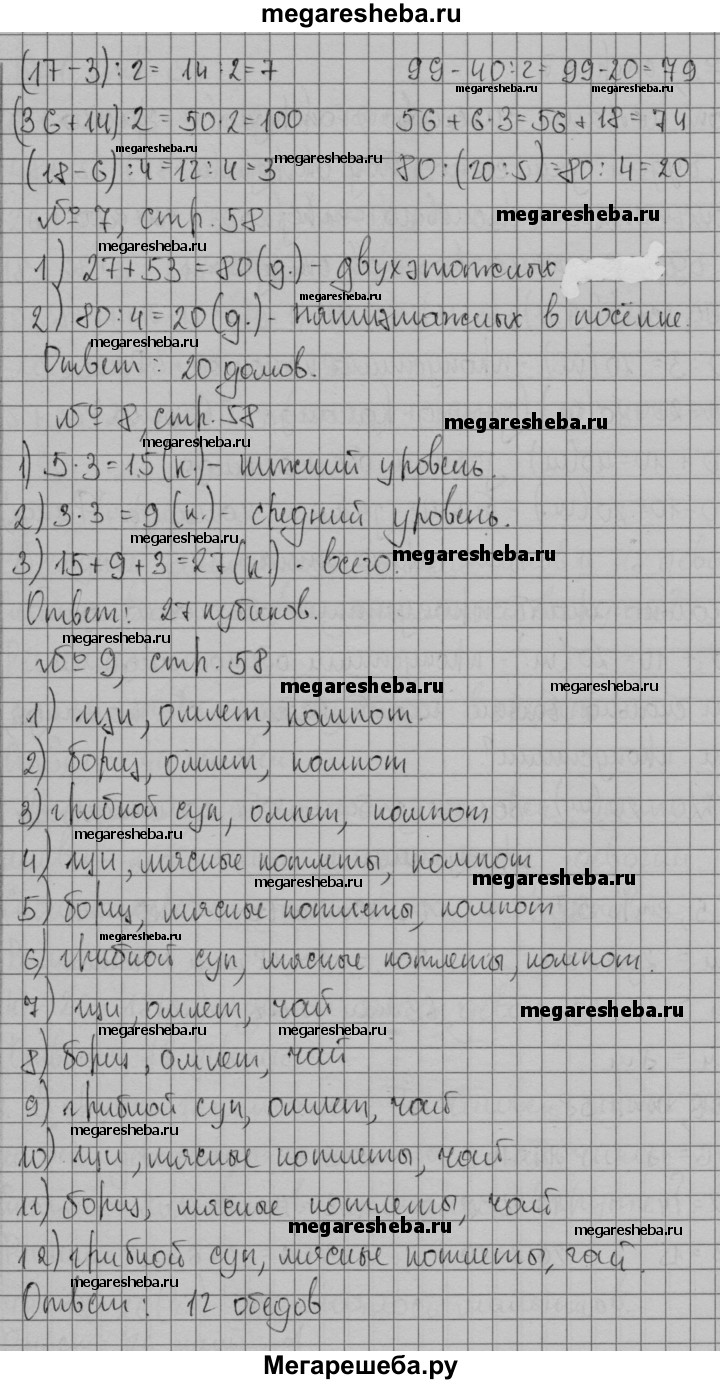 megaresheba.ru
(17-3):2= 14:2=7 99-40:2= 99-20=79
megaresheba.ru megaresheba.ru
(36+14)·2=50·2=100 56+6·3=56+18=74
megaresheba.ru megaresheba.ru
(18-6):4=12:4=3 80:(20:5)=80:4=20
№ 7, стр. 58 megaresheba.ru
megaresheba.ru
1) 27+53=80(д.)- двухэтажных
megaresheba.ru
2) 80:4=20(д.)- пятиэтажных в посёлке.
megaresheba.ru
Ответ: 20 домов.
№ 8, стр. 58 megaresheba.ru
megaresheba.ru
1) 5·3=15(к.)- нижний уровень.
2) 3·3=9(к.)- средний уровень.
megaresheba.ru megaresheba.ru
3) 15+9+3=27(к.)- всего.
Ответ: 27 кубиков.
megaresheba.ru
№ 9, стр. 58
megaresheba.ru megaresheba.ru
1) щи, омлет, компот.
2) борщ, омлет, компот
3) грибной суп, омлет, компот
megaresheba.ru
4) щи, мясные котлеты, компот
megaresheba.ru megaresheba.ru
5) борщ, мясные котлеты, компот
megaresheba.ru
6) грибной суп, мясные котлеты, компот.
7) щи, омлет, чай megaresheba.ru
megaresheba.ru megaresheba.ru
8) борщ, омлет, чай
9) грибной суп, омлет, чай
megaresheba.ru
10) щи, мясные котлеты, чай
11) борщ, мясные котлеты, чай
megaresheba.ru megaresheba.ru
12) грибной суп, мясные котлеты, чай.
megaresheba.ru
Ответ: 12 обедов
Мегарешеба.ру